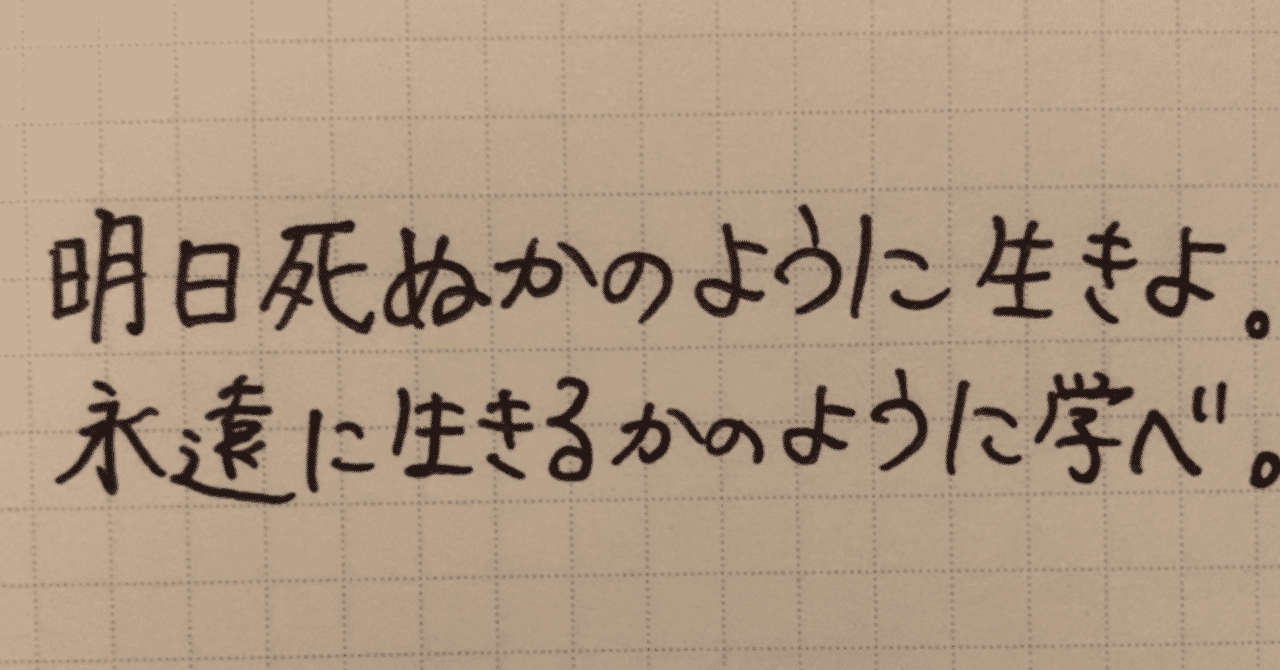 明日死ぬかのように生きよ。
永遠に生きるかのように学べ。